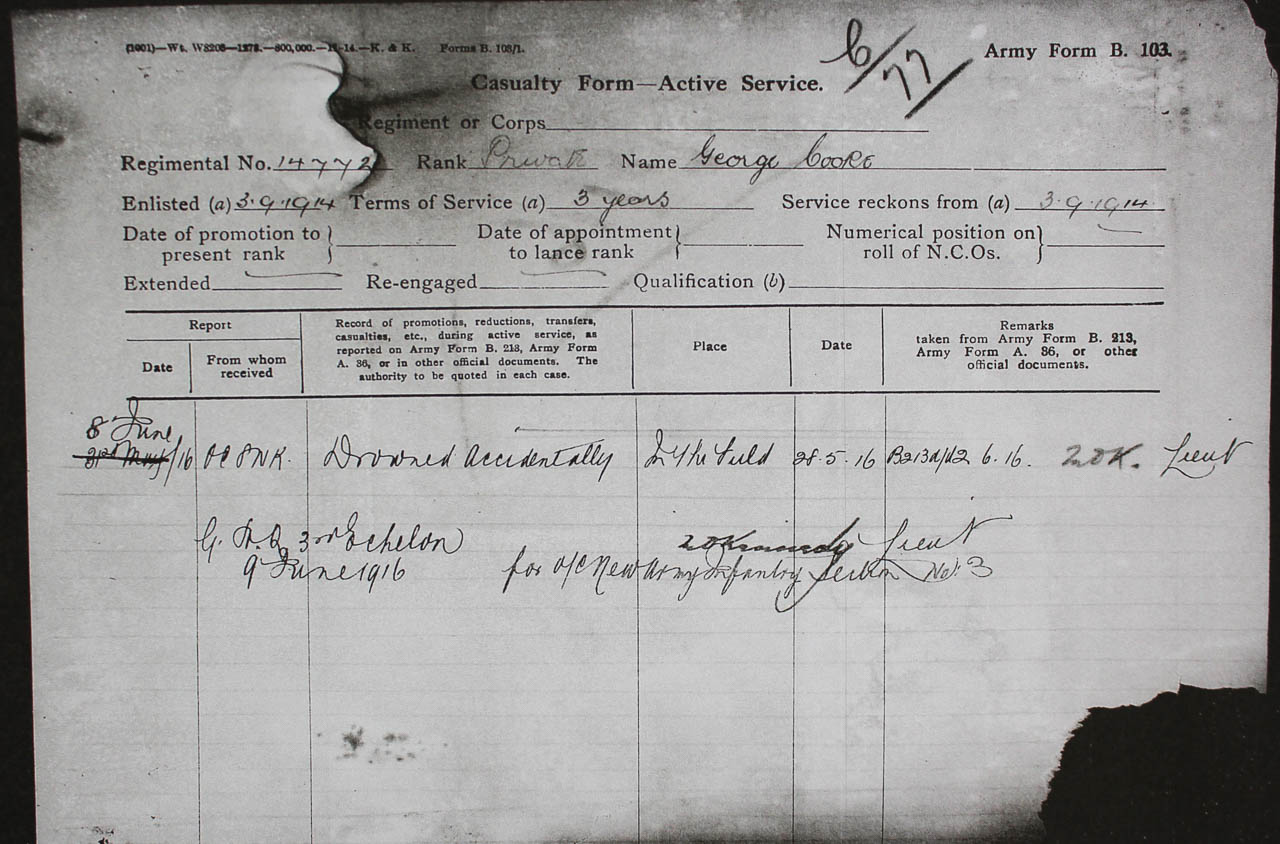 (1001)—Wt. W8206—1272.—800,000.—11-14.—K. & K. Forms B. 103/1.
6/77
Army Form B. 103.
Casualty Form—Active Service.
Regiment or Corps
Regimental No. 14772 Rank Private Name George Cooke
Enlisted (a) 3.9.1914 Terms of Service (a) 3 years Service reckons from (a) 3.9.1914
Date of promotion to present rank
Date of appointment to lance rank
Numerical position on roll of N.C.Os.
Extended Re-engaged Qualification (b)
Report
Date
From whom received
Record of promotions, reductions, transfers,
casualties, etc., during active service, as
reported on Army Form B. 213, Army Form
A. 36, or in other official documents. The
authority to be quoted in each case.
Place
Date
Remarks
taken from Army Form B. 213,
Army Form A. 36, or other
official documents.
8 June
/16 Drowned Accidentally In the Field 28.5.16 B213 6.16. Lieut
G.H.Q. 3rd Echelon Lieut
9 June 1916 for O/C New Army Infantry Section No. 3